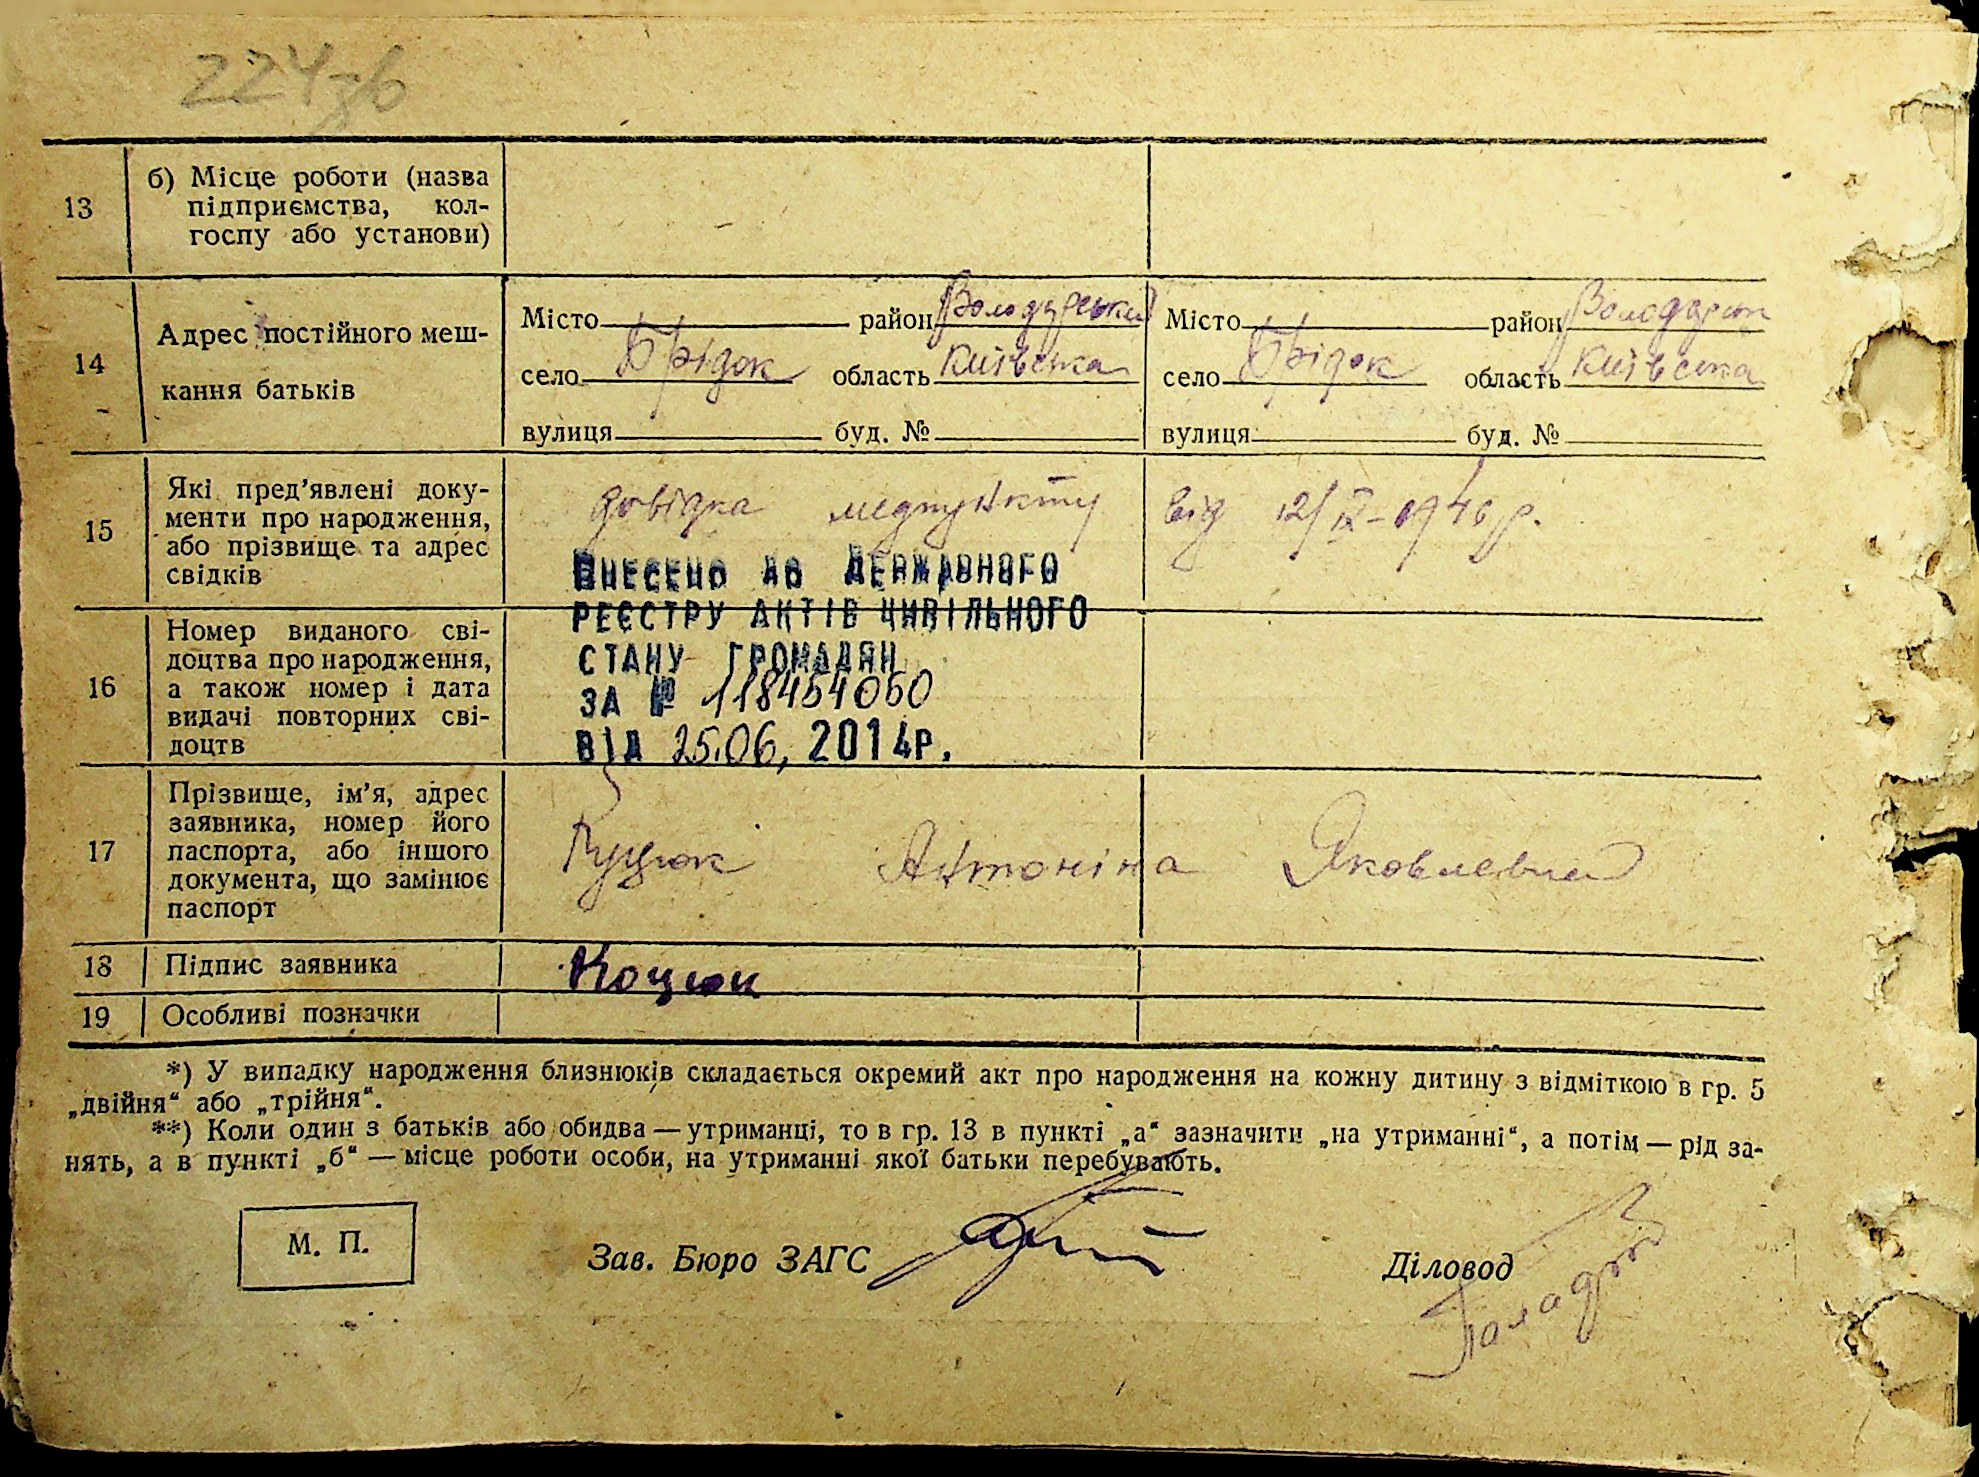 224зв
13
б) Місце роботи (назва
підприємства, кол-
госпу або установи)
14
Адрес постійного меш-
кання батьків
Місто район Володарський
село Брідок область Київська
вулиця буд. №
Місто район
село Брідок область Київська
вулиця буд. №
15
Які пред’явлені доку-
менти про народження,
або прізвище та адрес
свідків
довідка медпункту від 12/IX-1946 р.
16
Номер виданого сві-
доцтва про народження,
а також номер і дата
видачі повторних сві-
доцтв
ВНЕСЕНО ДО ДЕРЖАВНОГО
РЕЄСТРУ АКТІВ ЦИВІЛЬНОГО
СТАНУ ГРОМАДЯН
ЗА № 118454060
ВІД 25.06, 2014р.
17
Прізвище, ім’я, адрес
заявника, номер його
паспорта, або іншого
документа, що замінює
паспорт
Антоніна Яковлевна
18
Підпис заявника
Коцюк
19
Особливі позначки
*) У випадку народження близнюків складається окремий акт про народження на кожну дитину з відміткою в гр. 5
„двійня“ або „трійня“.
**) Коли один з батьків або обидва — утриманці, то в гр. 13 в пункті „а“ зазначити „на утриманні“, а потім — рід за-
нять, а в пункті „б“ — місце роботи особи, на утриманні якої батьки перебувають.
М. П.
Зав. Бюро ЗАГС
Діловод